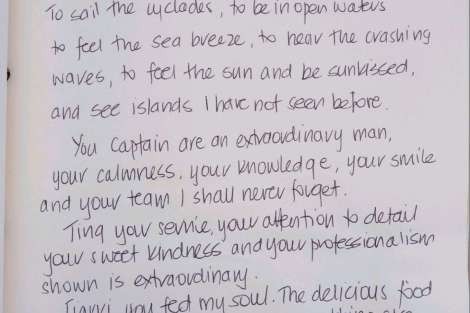 To sail the cyclades, to be in open waters
to feel the sea breeze, to hear the crashing
waves, to feel the sun and be sunkissed,
and see islands I have not seen before.
You Captain are an extraordinary man,
your calmness, your knowledge, your smile
and your team I shall never forget.
Tina your service, your attention to detail
your sweet kindness and your professionalism
shown is extraordinary.
you fed my soul. The delicious food